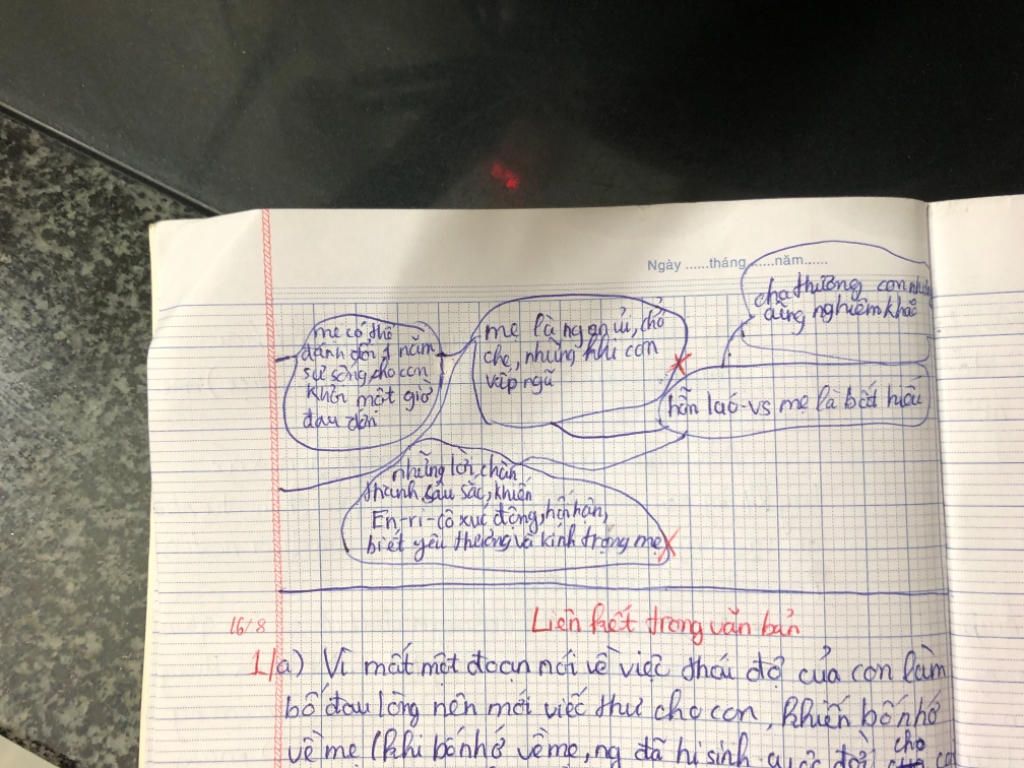 Ngày ......tháng ......năm......
cha thương con
cũng nghiêm khắc
mẹ có thể
đánh đổi 1 năm
sự sống cho con
khỏi một giờ
đau đớn
mẹ là ng an ủi, chở
che, những khi con
vấp ngã
hỗn láo vs mẹ là bất hiếu
những lời chân
thành, sâu sắc, khiến
En-ri-cô xúc động, hối hận,
biết yêu thương và kính trọng mẹ
16/8
Liên kết trong văn bản
1/a) Vì mất một đoạn nói về việc thái độ của con làm
bố đau lòng nên mới viếc thư cho con, khiến bố nhớ
về mẹ (khi bố nhớ về mẹ, ng đã hi sinh cuộc đời cho